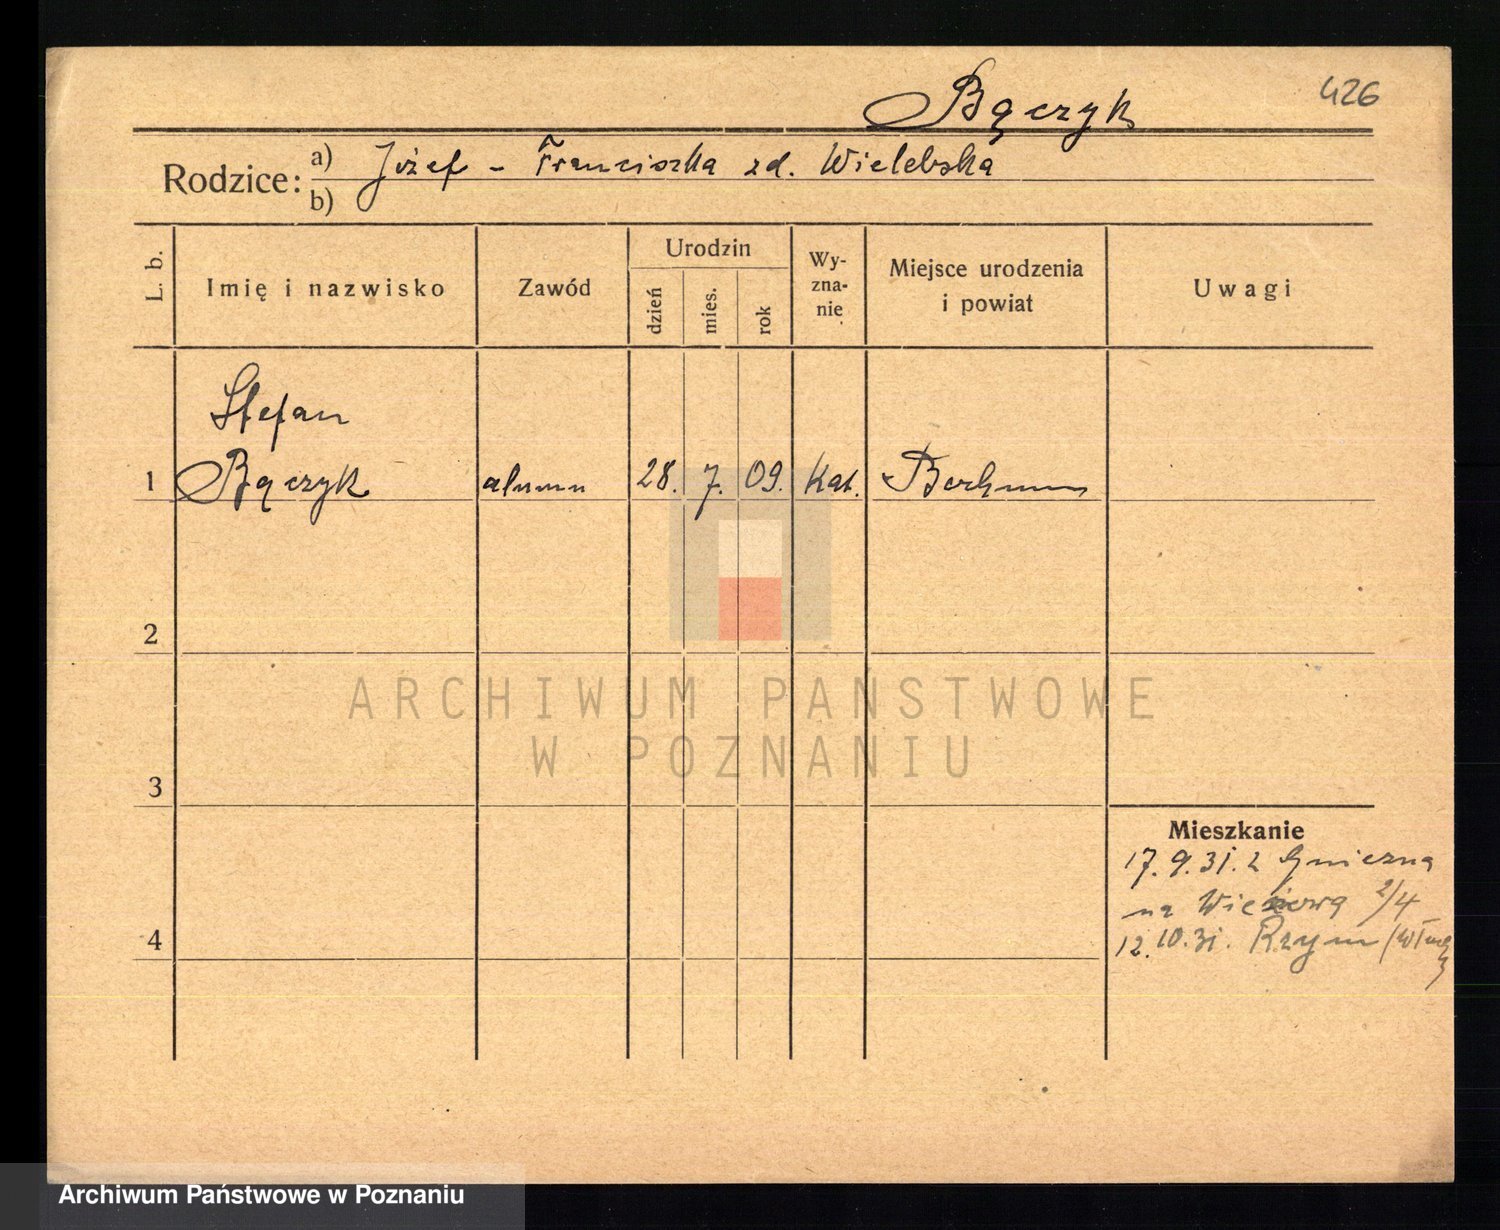 426
Bączyk
Rodzice: a) Józef - Franciszka zd. Wielebska
b)
L. b.
Imię i nazwisko
Zawód
Urodzin
dzień
mies.
rok
Wy-
zna-
nie
Miejsce urodzenia
i powiat
Uwagi
Stefan
1 Bączyk alumn 28. 7. 09. Kat. Bochum
2
3
4
Mieszkanie
17.9.31. z Gniezna
na Wieżową 2/4
12.10.31. Rzym
ARCHIWUM PAŃSTWOWE
W POZNANIU
Archiwum Państwowe w Poznaniu